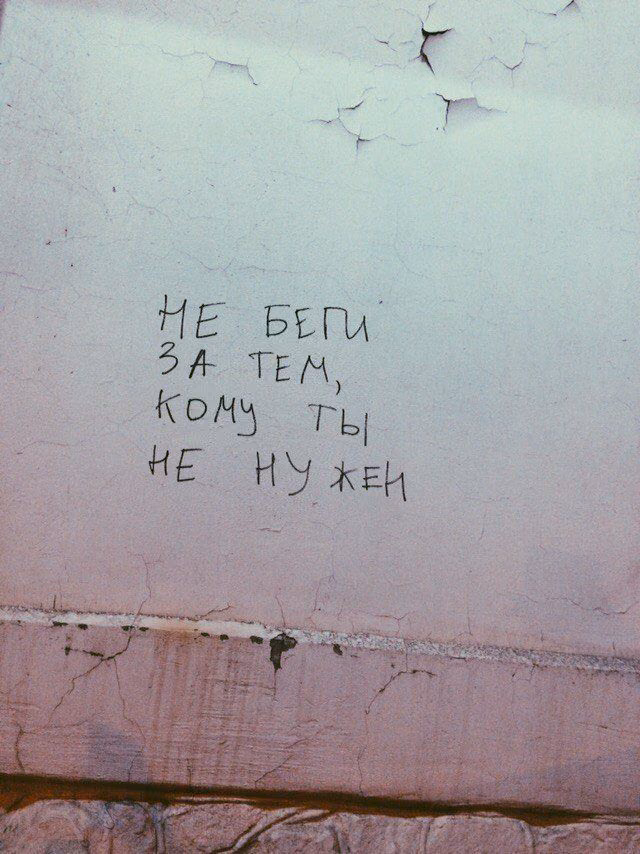 НЕ БЕГИ
ЗА ТЕМ,
КОМУ ТЫ
НЕ НУЖЕН